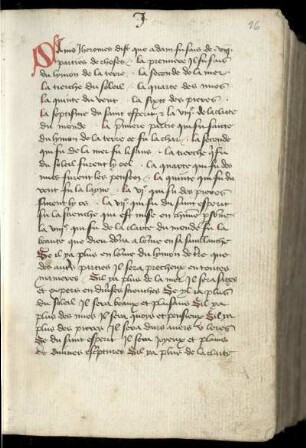 J
96
Saint Iheromes dist que adam fu fais de viij
parties de choses . la premiere il fu fais
du lymon de la terre . la seconde de la mer
la tierche du soleil . la quarte des nues
la quinte du vent . la sixte des pieres .
la septisme du saint esperit & la viije de la clarte
du monde . la premiere partie qui fu faite
du lymon de la terre ce fu la char . la seconde
qui fu de la mer fu li sans . la tierche qui fu
du soleil furent les oel . la quarte qui fu des
nues furent les pensees . la quinte qui fu du
vent fu la layne . la vje qui fu des pieres
furent les os . la vije qui fu du saint esperit
fu la scienche qui est mise en
la viije qui fu de la clarte du monde fu la
beaute que dieu dona a lome en sa samblanche
Se il ya plus en lome du lymon de
des autres parties il sera precheux en toutes
manieres . Sil ya plus de la mer Il sera sages
& en diuerses sciences Se il ya plus
du soleil Il sera beaux et plaisans Sil ya
plus des nues Il sera quoys et pensieux Sil ya
plus des pieres Il sera durs auers & leres
Se du saint esperit Il sera Joyeux et plains
de diuines escriptures Sil ya plus de la clarte